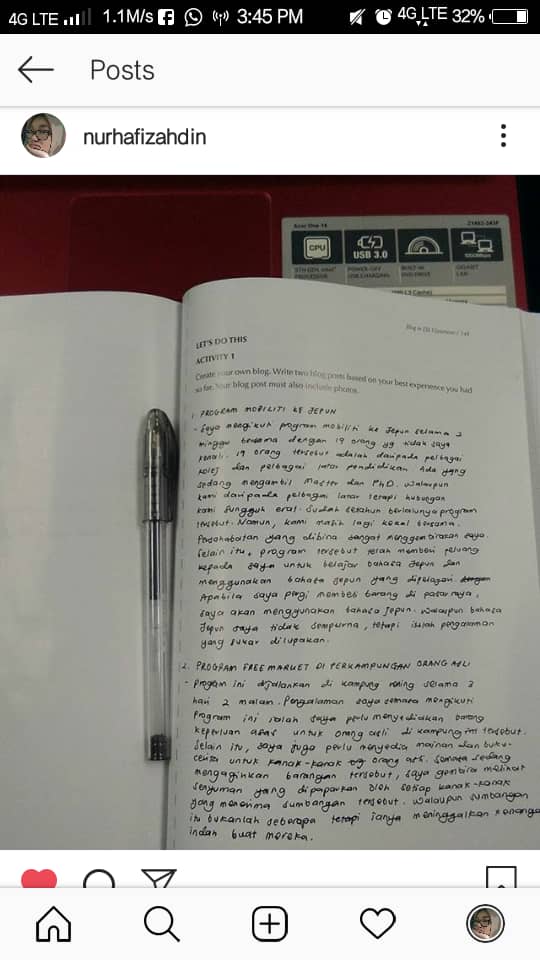 4G LTE 1.1M/s 3:45 PM 4G LTE 32%
Posts
nurhafizahdin
Acer One 14 Z1402-343P
CPU
USB 3.0
1000Mbps
5TH GEN Intel® PROCESSOR
POWER-OFF USB CHARGING
BUILT-IN DVD DRIVE
GIGABIT LAN
LET'S DO THIS
ACTIVITY 1
Create your own blog. Write two blog posts based on your best experience you had
so far. Your blog post must also include photos.
1. PROGRAM MOBILITI KE JEPUN
- Saya mengikuti program mobiliti ke Jepun selama 2
minggu bersama dengan 19 orang yg tidak saya
kenali. 19 orang tersebut adalah daripada pelbagai
kolej dan pelbagai latar pendidikan. Ada yang
sedang mengambil Master dan PhD. Walaupun
kami daripada pelbagai latar tetapi hubungan
kami sungguh erat. Sudah setahun berlalunya program
tersebut. Namun, kami masih lagi kekal bersama.
Persahabatan yang dibina sangat menggembirakan saya.
Selain itu, program tersebut telah memberi peluang
kepada saya untuk belajar bahasa Jepun dan
menggunakan bahasa Jepun yang dipelajari.
Apabila saya pergi membeli barang di pasaraya,
saya akan menggunakan bahasa Jepun. Walaupun bahasa
Jepun saya tidak sempurna, tetapi ialah pengalaman
yang sukar dilupakan.
2. PROGRAM FREE MARKET DI PERKAMPUNGAN ORANG ASLI
- Program ini dijalankan di kampung selama 3
hari 2 malam. Pengalaman saya semasa mengikuti
Program ini ialah saya perlu menyediakan barang
keperluan asas untuk orang asli di kampung tersebut.
Selain itu, saya juga perlu menyedia mainan dan buku-
cerita untuk kanak-kanak orang asli. Semasa sedang
mengagihkan barangan tersebut, saya gembira melihat
senyuman yang dipaparkan oleh setiap kanak-kanak
yang menerima sumbangan tersebut. Walaupun sumbangan
itu bukanlah seberapa tetapi ianya meninggalkan kenangan
indah buat mereka.